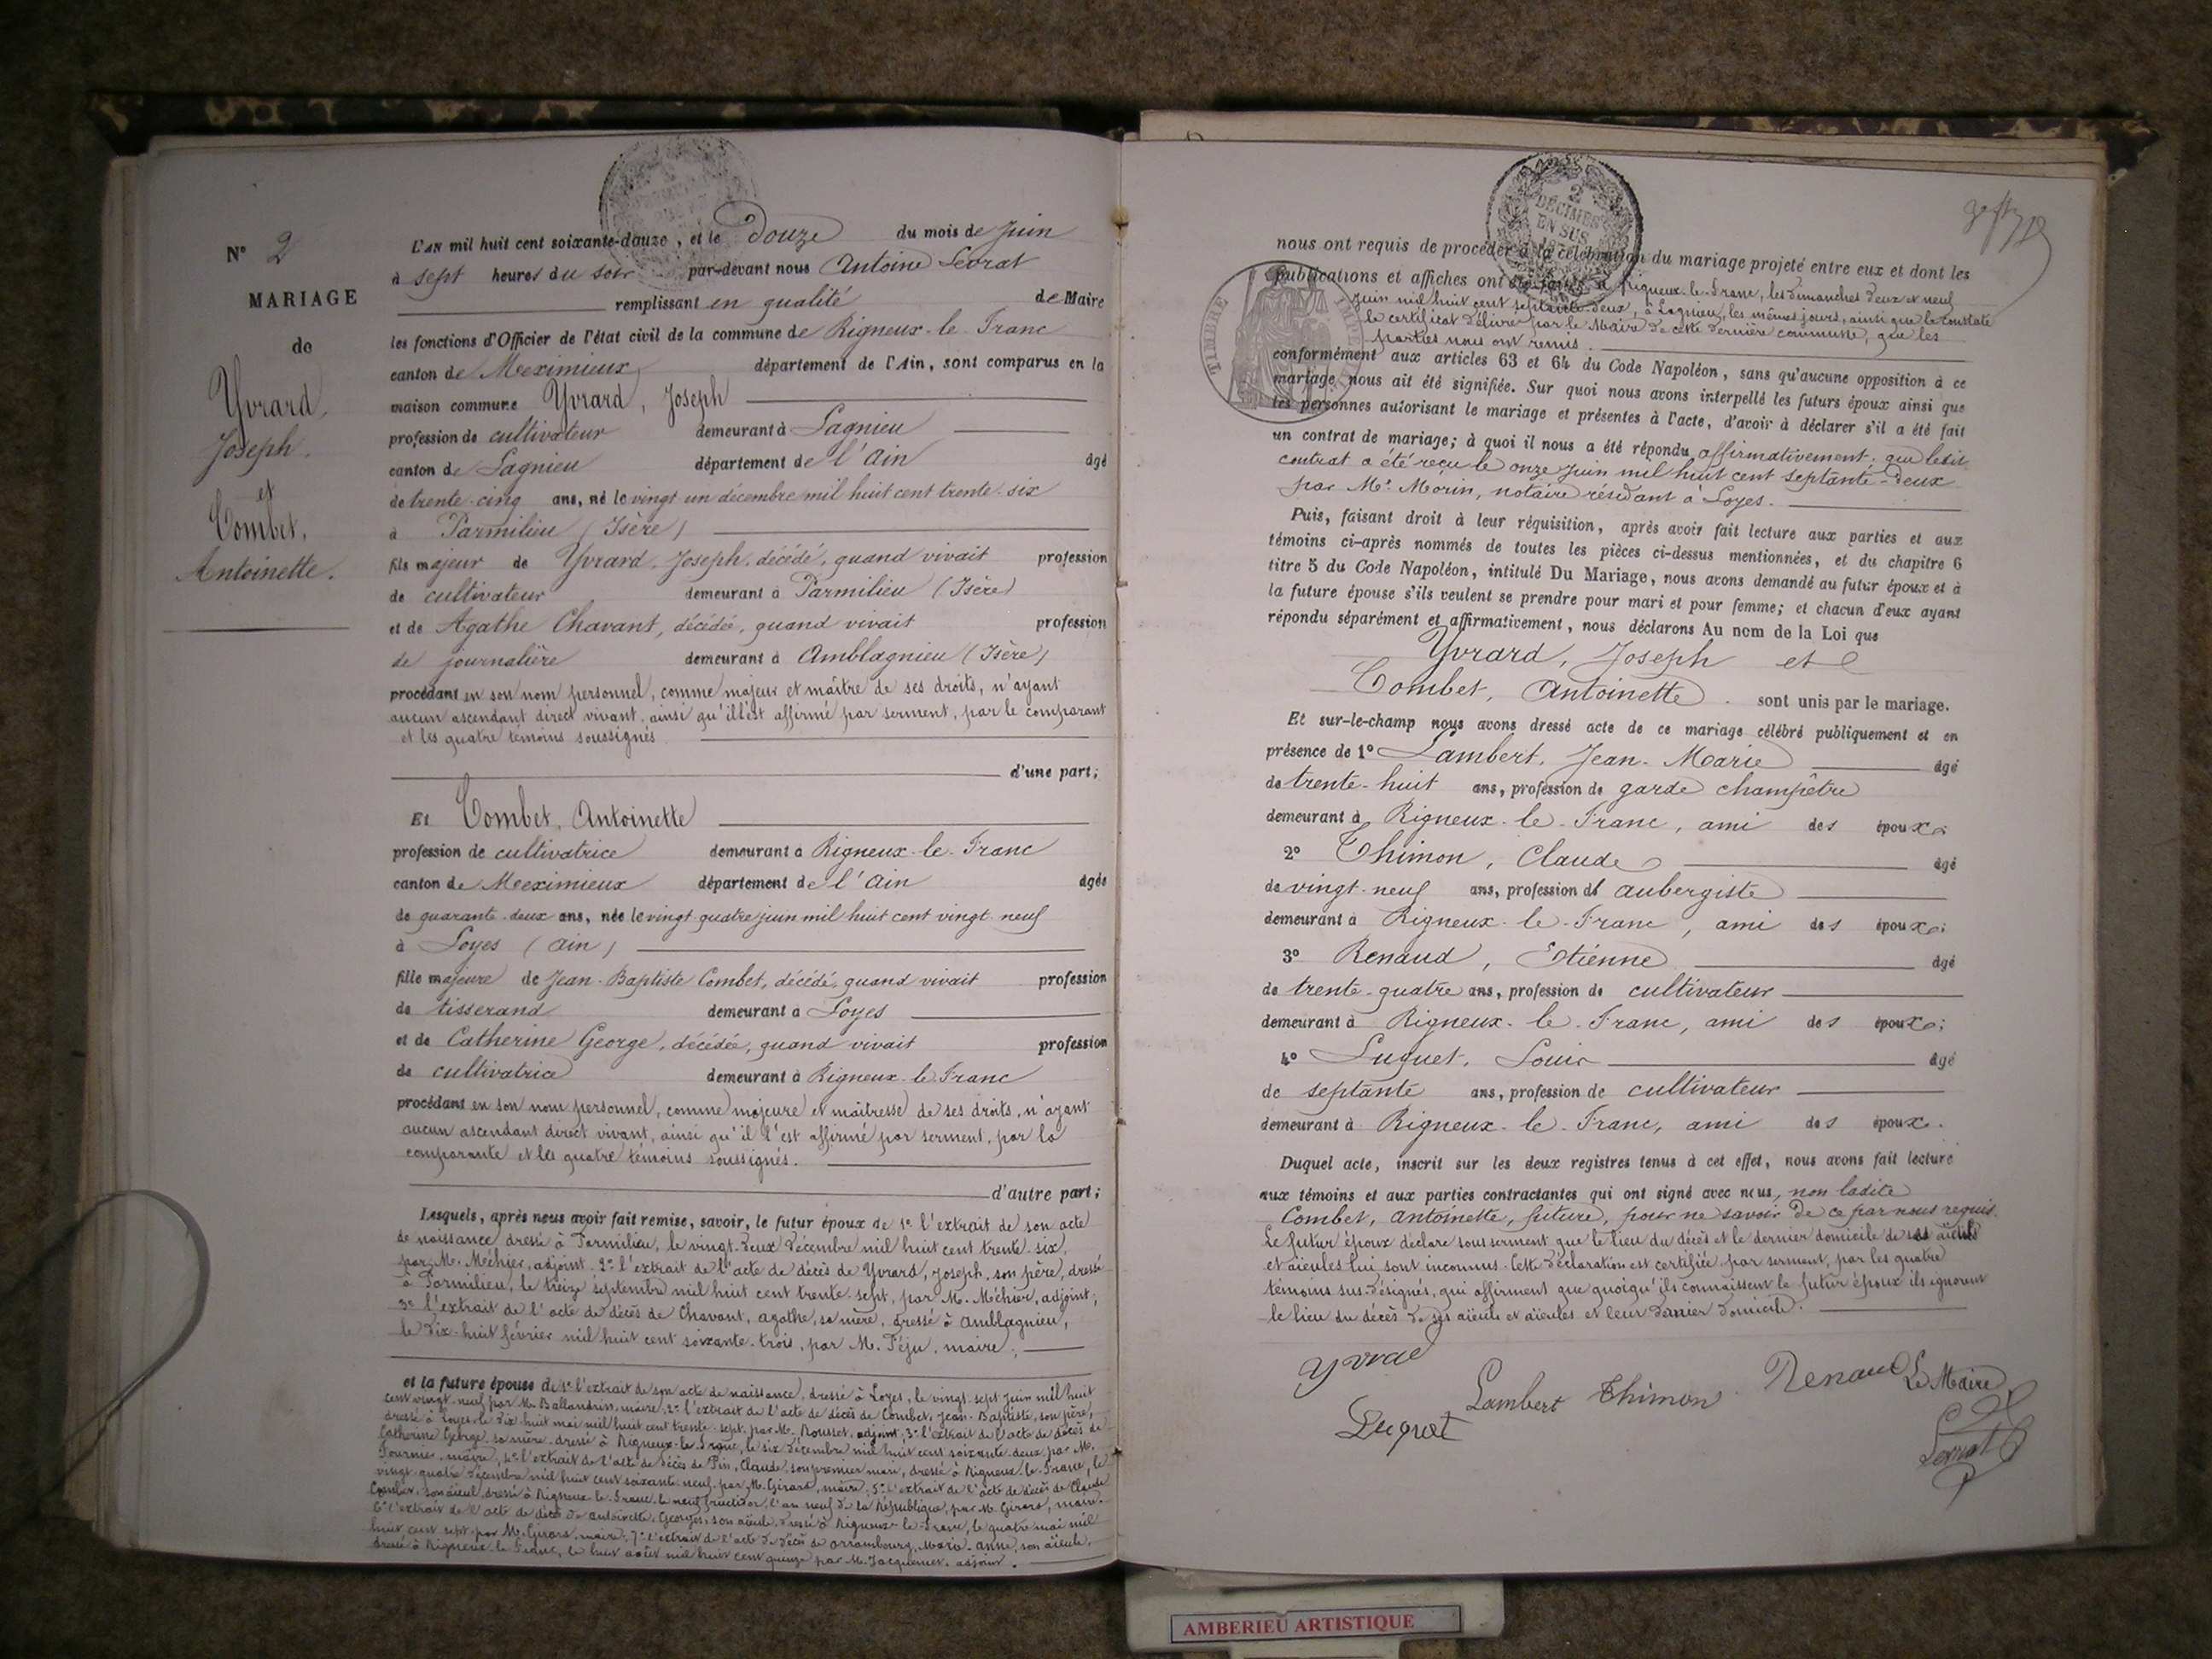 N° 2
MARIAGE
de
Yvrard,
Joseph.
et
Combet,
Antoinette.
L'AN mil huit cent soixante-douze, et le Douze du mois de Juin
à sept heures du soir par-devant nous Antoine Levrat
remplissant en qualité de Maire
les fonctions d'Officier de l'état civil de la commune de Rigneux-le-Franc
canton de Meximieux département de l'Ain, sont comparus en la
maison commune Yvrard, Joseph
profession de cultivateur demeurant à Lagnieu
canton de Lagnieu département de l'Ain âgé
de trente-cinq ans, né le vingt un décembre mil huit cent trente-six
à Parmilieu (Isère)
fils majeur de Yvrard, Joseph, décédé, quand vivait profession
de cultivateur demeurant à Parmilieu (Isère)
et de Agathe Chavant, décédée, quand vivait profession
de journalière demeurant à Amblagnieu (Isère)
procédant en son nom personnel, comme majeur et maître de ses droits, n'ayant
aucun ascendant direct vivant, ainsi qu'il l'est affirmé par serment, par le comparant
et les quatre témoins soussignés
d'une part;
Et Combet, Antoinette
profession de cultivatrice demeurant à Rigneux-le-Franc
canton de Meximieux département de l'Ain âgée
de quarante-deux ans, née le vingt-quatre juin mil huit cent vingt-neuf
à Loyes (Ain)
fille majeure de Jean-Baptiste Combet, décédé, quand vivait profession
de tisserand demeurant à Loyes
et de Catherine George, décédée, quand vivait profession
de cultivatrice demeurant à Rigneux-le-Franc
procédant en son nom personnel, comme majeure et maîtresse de ses droits, n'ayant
aucun ascendant direct vivant, ainsi qu'il l'est affirmé par serment, par la
comparante et les quatre témoins soussignés.
d'autre part;
Lesquels, après nous avoir fait remise, savoir, le futur époux de 1° l'extrait de son acte
de naissance dressé à Parmilieu, le vingt-deux décembre mil huit cent trente-six,
par M. Méchier, adjoint, 2° l'extrait de l'acte de décès de Yvrard, Joseph, son père, dressé
à Parmilieu, le treize septembre mil huit cent trente-sept, par M. Méchier, adjoint;
3° l'extrait de l'acte de décès de Chavant, Agathe, sa mère, dressé à Amblagnieu,
le dix-huit février mil huit cent soixante-trois, par M. Péju, maire;
et la future épouse de 1° l'extrait de son acte de naissance, dressé à Loyes, le vingt-sept juin mil huit
cent vingt-neuf par M. Ballandrin, maire, 2° l'extrait de l'acte de décès de Combet, Jean-Baptiste, son père,
dressé à Loyes le dix-huit mai mil huit cent trente-sept, par M. Rousset, adjoint, 3° l'extrait de l'acte de décès de
Catherine George, sa mère, dressé à Rigneux-le-Franc, le six décembre mil huit cent soixante-deux par M.
Fournier, maire, 4° l'extrait de l'acte de décès de Pin, Claude, son premier mari, dressé à Rigneux-le-Franc, le
vingt-quatre décembre mil huit cent soixante-neuf, par M. Girard, maire, 5° l'extrait de l'acte de décès de Claude
Combet, son aïeul, dressé à Rigneux-le-Franc, le neuf fructidor, l'an neuf de la République, par M. Girard, maire.
6° l'extrait de l'acte de décès de Antoinette, Georges, son aïeule, dressé à Rigneux-le-Franc, le quatre mai mil
huit cent sept par M. Girard, maire, 7° l'extrait de l'acte de décès de Marie-Anne, son aïeule,
dressé à Rigneux-le-Franc, le huit août mil huit cent quinze par M. Jacquemet, adjoint.
2 DÉCIMES EN SUS
TIMBRE
nous ont requis de procéder à la célébration du mariage projeté entre eux et dont les
publications et affiches ont été faites à Rigneux-le-Franc, les dimanches deux et neuf
Juin mil huit cent septante-deux, à Lagnieu, les mêmes jours, ainsi que le constate
le certificat délivré par le Maire de cette dernière commune, que les
parties nous ont remis
conformément aux articles 63 et 64 du Code Napoléon, sans qu'aucune opposition à ce
mariage nous ait été signifiée. Sur quoi nous avons interpellé les futurs époux ainsi que
les personnes autorisant le mariage et présentes à l'acte, d'avoir à déclarer s'il a été fait
un contrat de mariage; à quoi il nous a été répondu affirmativement; que ledit
contrat a été reçu le onze juin mil huit cent septante-deux
par Me Morin, notaire résidant à Loyes.
Puis, faisant droit à leur réquisition, après avoir fait lecture aux parties et aux
témoins ci-après nommés de toutes les pièces ci-dessus mentionnées, et du chapitre 6
titre 5 du Code Napoléon, intitulé Du Mariage, nous avons demandé au futur époux et à
la future épouse s'ils veulent se prendre pour mari et pour femme; et chacun d'eux ayant
répondu séparément et affirmativement, nous déclarons Au nom de la Loi que
Yvrard, Joseph et
Combet, Antoinette. sont unis par le mariage.
Et sur-le-champ nous avons dressé acte de ce mariage célébré publiquement et en
présence de 1° Lambert, Jean-Marie âgé
de trente-huit ans, profession de garde champêtre
demeurant à Rigneux-le-Franc, ami des époux;
2° Thimon, Claude âgé
de vingt-neuf ans, profession d' aubergiste
demeurant à Rigneux-le-Franc, ami des époux;
3° Renaud, Etienne âgé
de trente-quatre ans, profession de cultivateur
demeurant à Rigneux-le-Franc, ami des époux;
4° Luquet, Louis âgé
de septante ans, profession de cultivateur
demeurant à Rigneux-le-Franc, ami des époux.
Duquel acte, inscrit sur les deux registres tenus à cet effet, nous avons fait lecture
aux témoins et aux parties contractantes qui ont signé avec nous, non ladite
Combet, Antoinette, future, pour ne savoir de ce par nous requis.
Le futur époux déclare sous serment que le lieu du décès et le dernier domicile de ses aïeuls
et aïeules lui sont inconnus. Cette déclaration est certifiée par serment, par les quatre
témoins sus-désignés, qui affirment que quoiqu'ils connaissent le futur époux ils ignorent
le lieu du décès de ses aïeuls et aïeules et leur dernier domicile.
Yvrad
Lambert Thimon Renaud Le Maire
Luquet
Levrat
AMBERIEU ARTISTIQUE